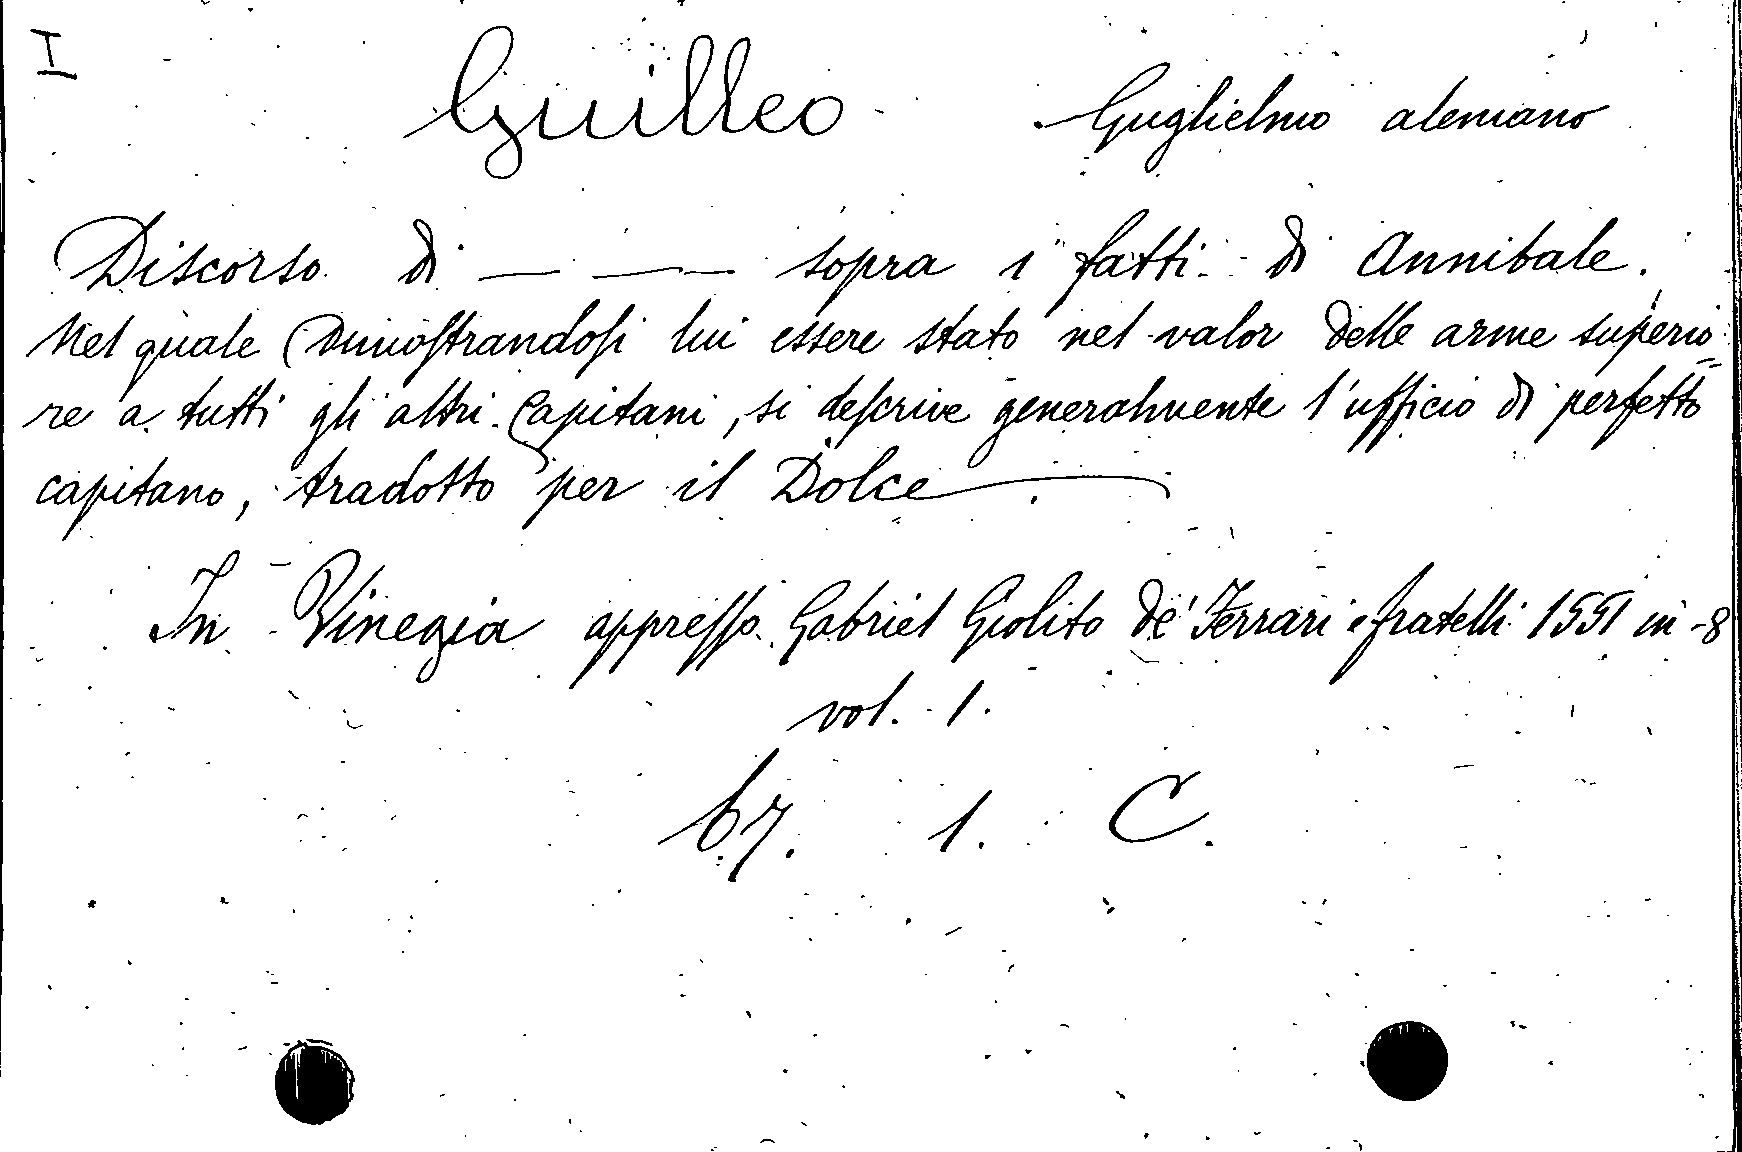 I
Guilleo Guglielmo alemano
Discorso di — — sopra i fatti di Annibale.
Nel quale Dimoſtrandoſi lui essere stato nel valor delle arme superio=
re a tutti gli altri Capitani, si deſcrive generalmente l'ufficio di perfetto
capitano, tradotto per il Dolce
In Vinegia appreſſo Gabriel Giolito de' Ferrari e fratelli 1551 in-8
vol. 1.
67. 1. C.